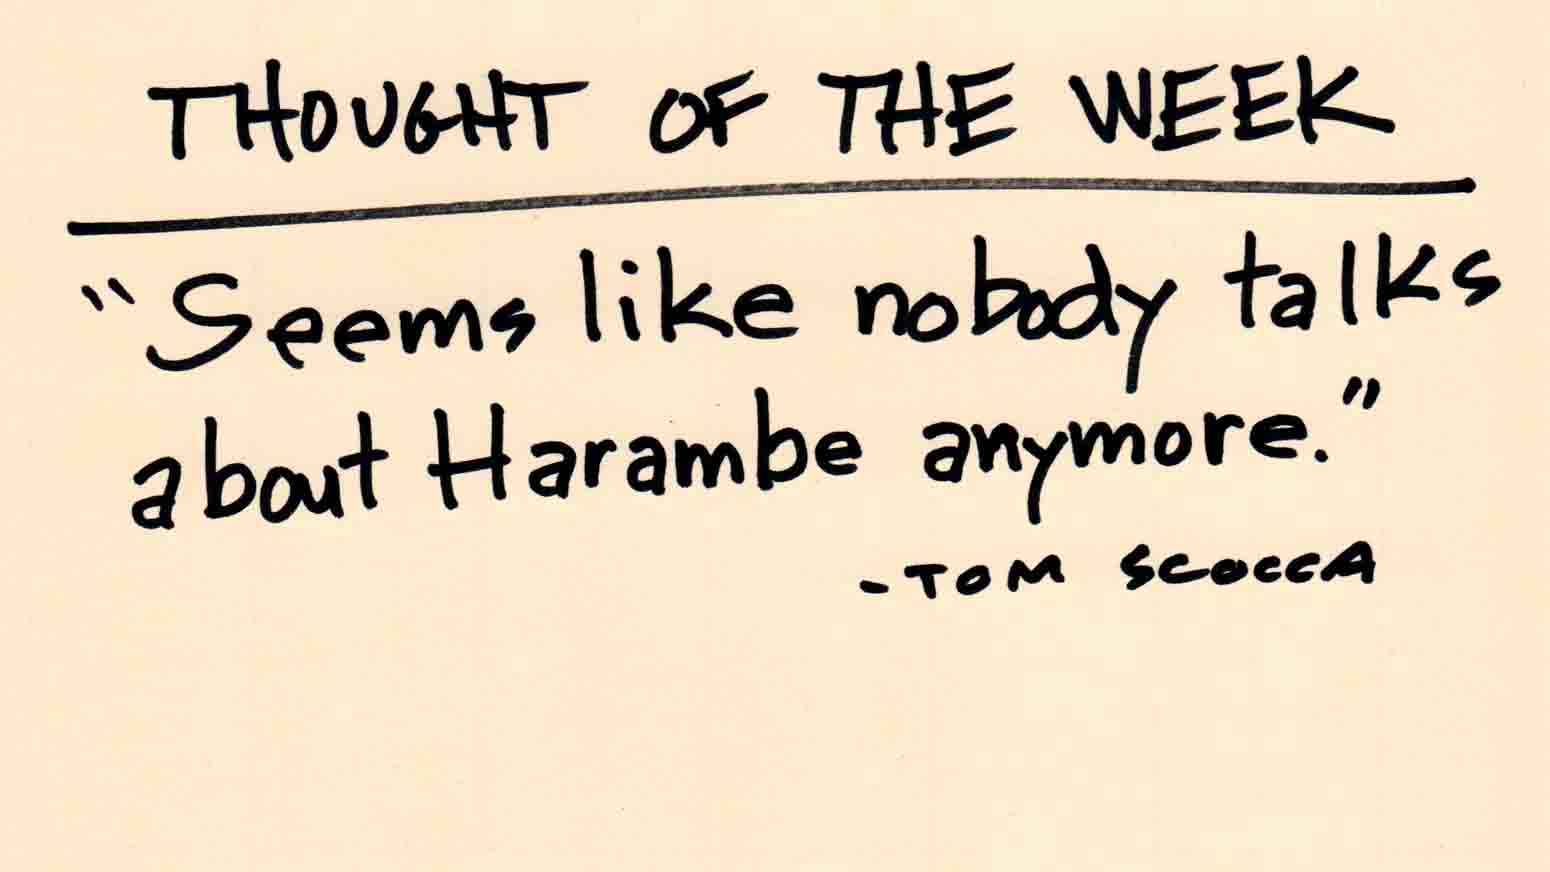 THOUGHT OF THE WEEK
“Seems like nobody talks
about Harambe anymore.”
-TOM SCOCCA